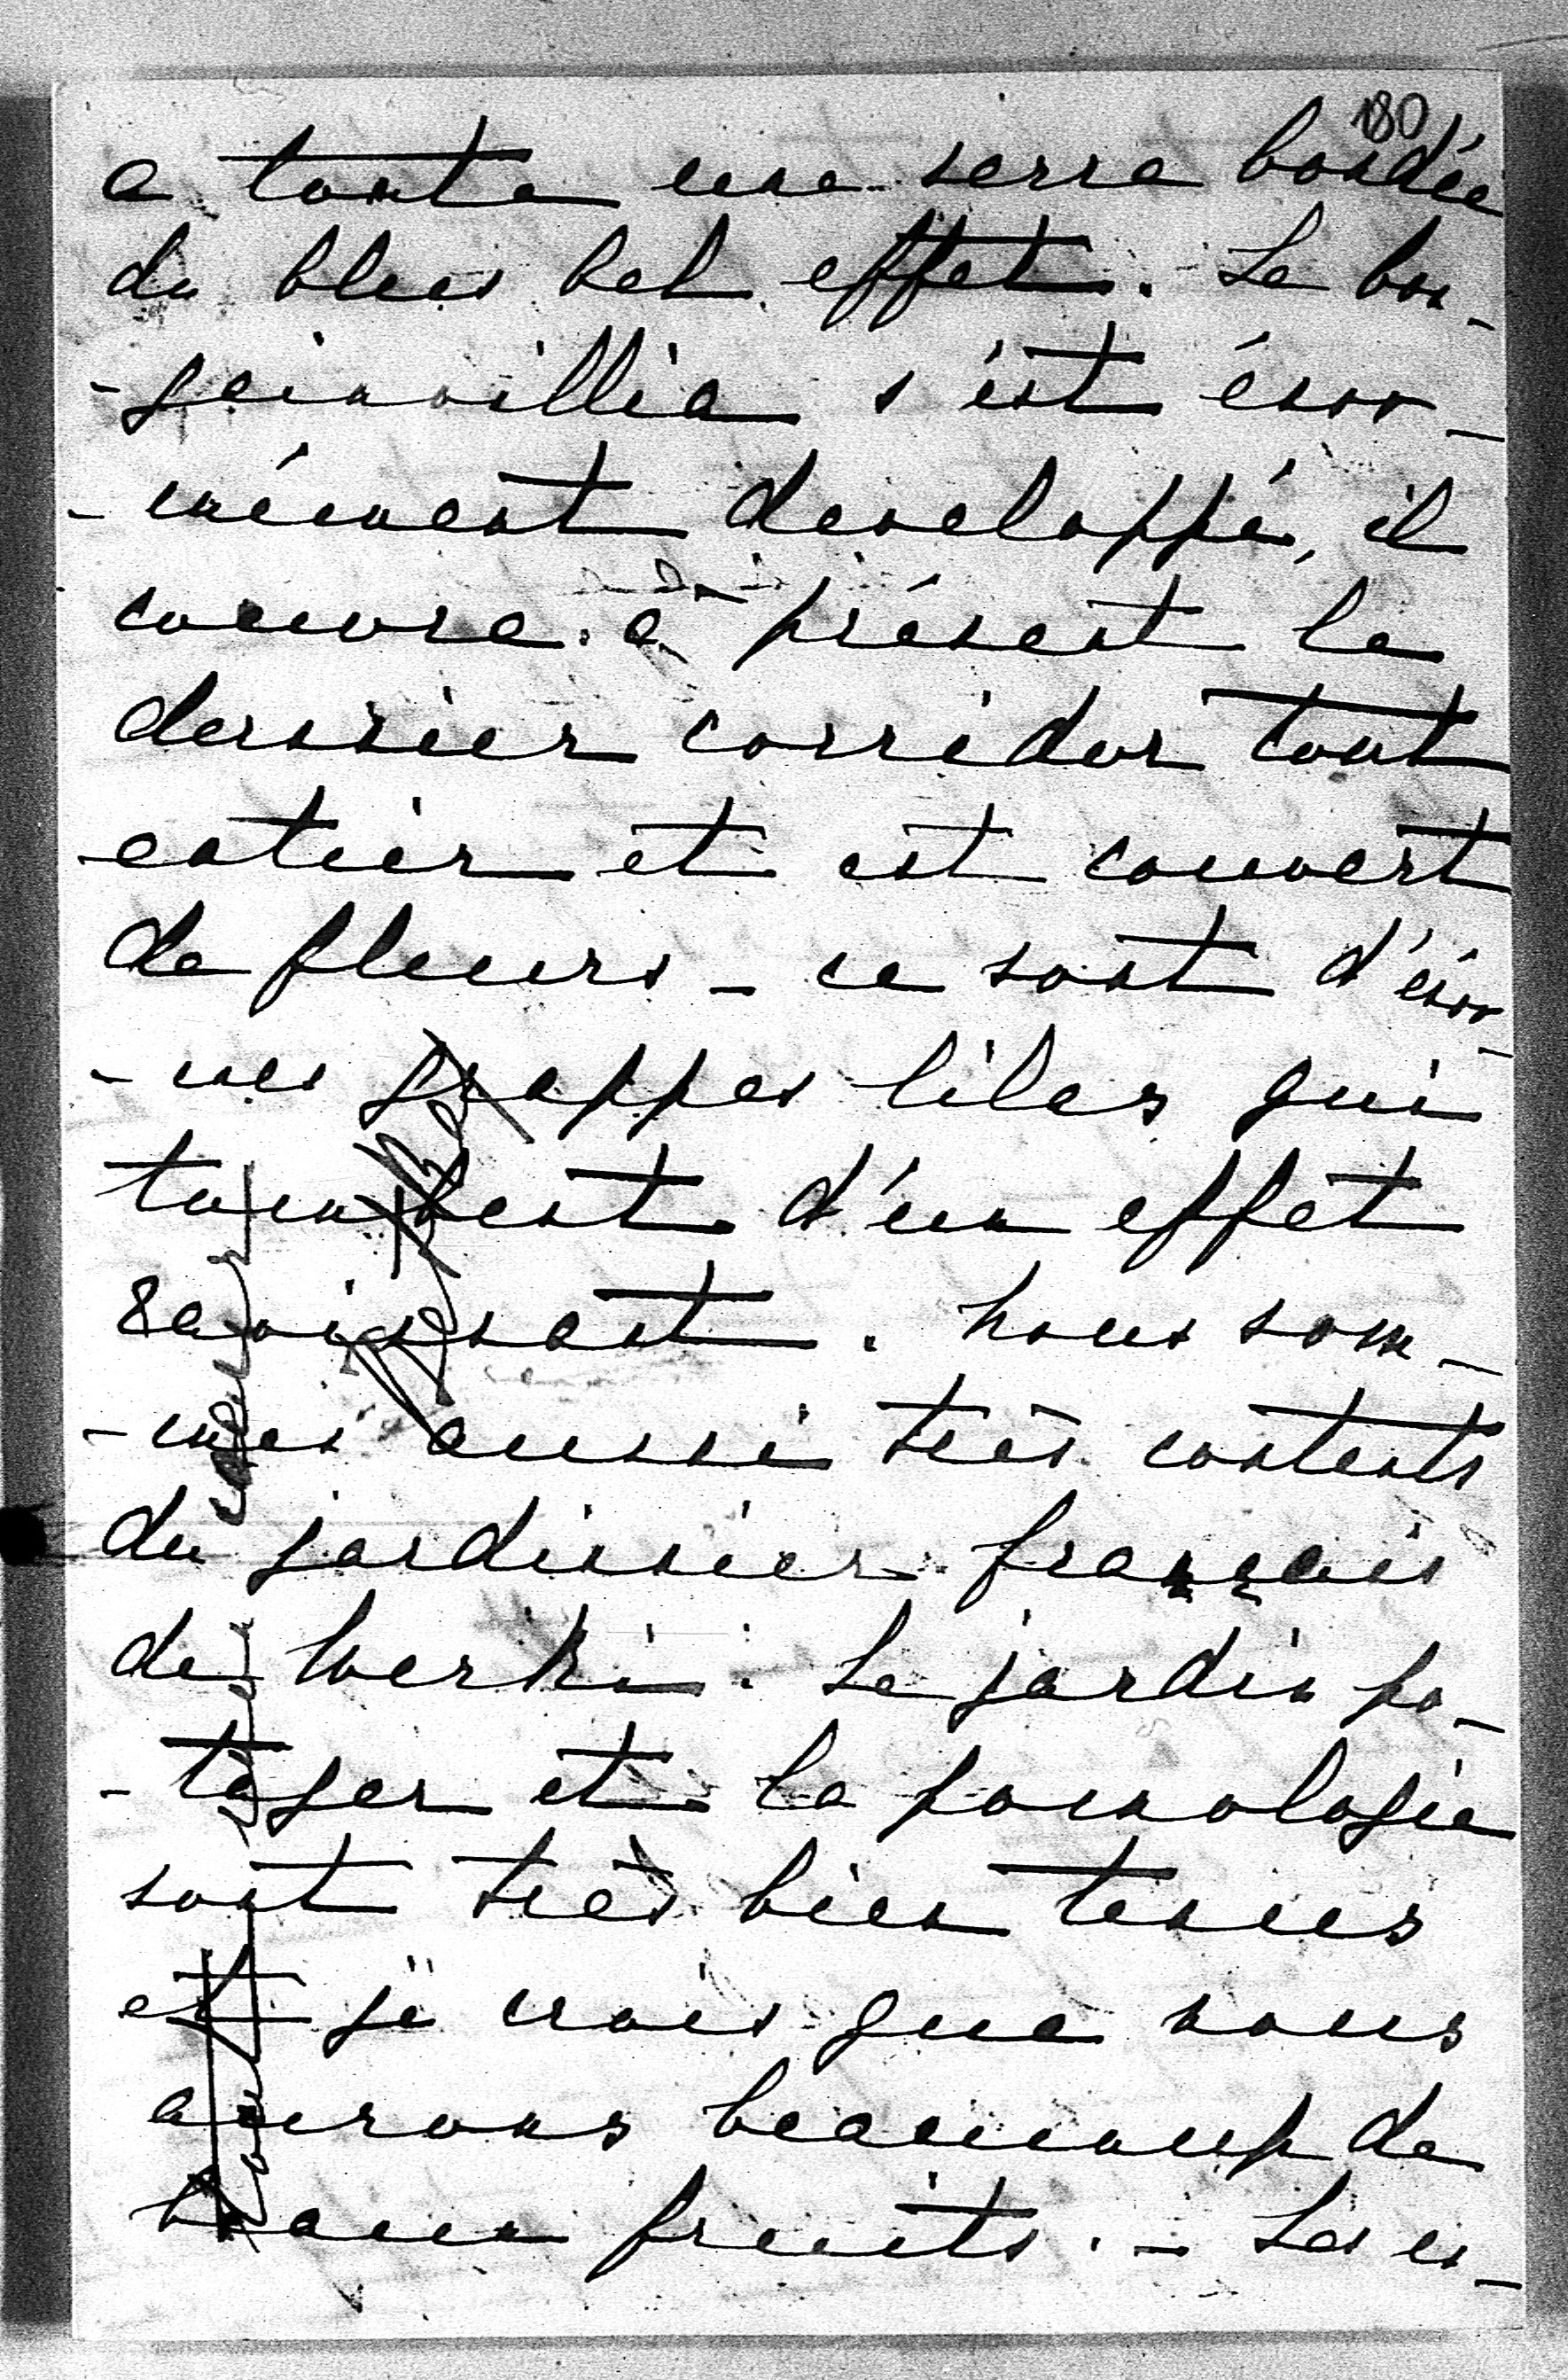 180
a toute une serre bordée
du plus bel effet. Le bou-
-gainvillia s'est énor-
-mément developpé, il
couvre à présent le
dernier corridor tout
entier et est couvert
de fleurs - ce sont d'énor-
-mes grappes lilas qui
tombent d'un effet
ravissant. Nous som-
-mes aussi très contents
du jardinier français
de Werki. Le jardin po-
-tager et la pomologie
sont très bien tenus
et je crois que nous
aurons beaucoup de
beaux fruits. - Les en-